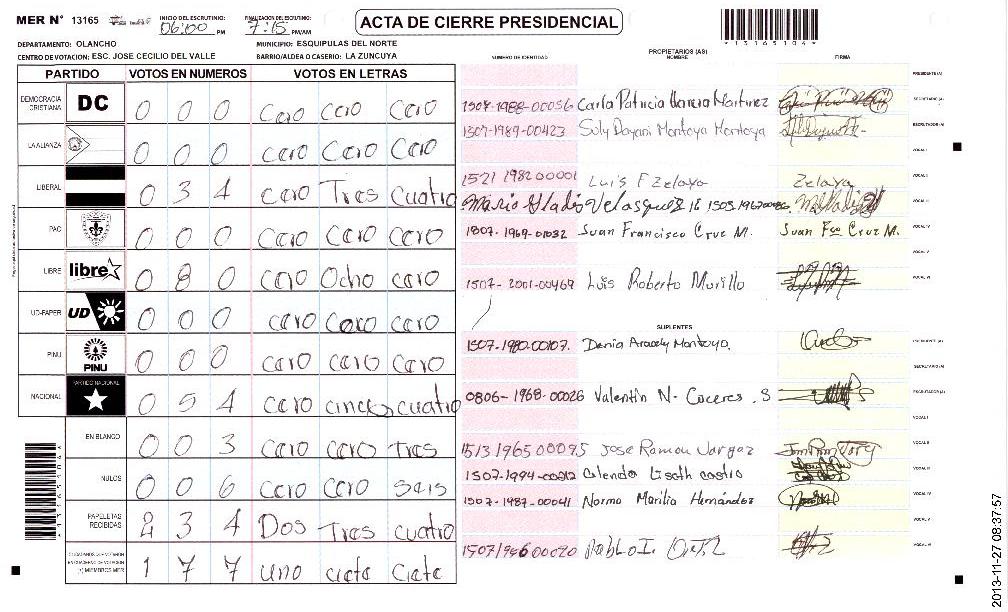 MER N° 13165
INICIO DEL ESCRUTINIO:
06:00 PM
FINALIZACION DEL ESCRUTINIO:
7:15 PM/AM
ACTA DE CIERRE PRESIDENCIAL
*13165104*
DEPARTAMENTO: OLANCHO
MUNICIPIO: ESQUIPULAS DEL NORTE
CENTRO DE VOTACION: ESC. JOSE CECILIO DEL VALLE
BARRIO/ALDEA O CASERIO: LA ZUNCUYA
PARTIDO VOTOS EN NUMEROS VOTOS EN LETRAS
DEMOCRACIA CRISTIANA DC 0 0 0 Cero Cero Cero
LA ALIANZA 0 0 0 Cero Cero Cero
LIBERAL 0 3 4 Cero Tres Cuatro
PAC 0 0 0 Cero Cero Cero
LIBRE libre 0 8 0 Cero Ocho Cero
UD-FAPER UD 0 0 0 Cero Cero Cero
PINU PINU 0 0 0 Cero Cero Cero
NACIONAL PARTIDO NACIONAL 0 5 4 Cero cinco cuatro
EN BLANCO 0 0 3 Cero Cero Tres
NULOS 0 0 6 Cero Cero Seis
PAPELETAS RECIBIDAS 2 3 4 Dos Tres Cuatro
CIUDADANOS QUE VOTARON EN CUADERNO DE VOTACION (+) MIEMBROS MER 1 7 7 uno ciete Ciete
NUMERO DE IDENTIDAD PROPIETARIOS (AS) NOMBRE FIRMA
PRESIDENTE (A)
1507-1988-00056 Carla Patricia Herrera Martinez SECRETARIO (A)
1507-1989-00423 Suly Dayani Montoya Montoya ESCRUTADOR (A)
VOCAL I
1521 1982 00001 Luis F Zelaya Zelaya VOCAL II
Mario Gladis Velasquez VOCAL III
1807-1969-01032 Juan Francisco Cruz M. Juan Fco Cruz M. VOCAL IV
VOCAL V
1507-2001-00469 Luis Roberto Murillo VOCAL VI
SUPLENTES
1507-1980-00107. Denia Aracely Montoya. PRESIDENTE (A)
SECRETARIO (A)
0806-1968-00026 Valentin N. Caceres. S ESCRUTADOR (A)
VOCAL I
1513 1965 00095 Jose Ramon Vargaz VOCAL II
1507-1994-00012 Glenda Liseth Castro VOCAL III
1507-1987-00041 Norma Marilia Hernández VOCAL IV
VOCAL V
1507 1966 00020 Pablo I. Ortiz VOCAL VI
2013-11-27 08:37:57